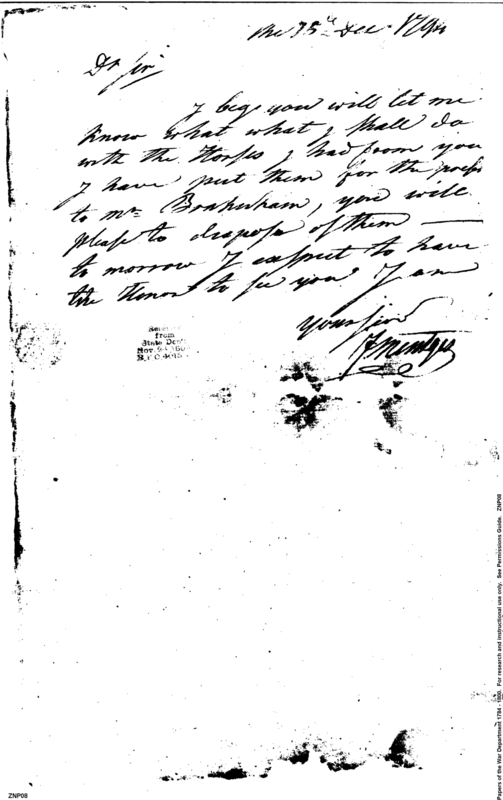 Dec. 1794
Dr Sir
I beg you will let me
know what what I shall do
with the Horses I had from you
I have put them for the
to Mr. Brakenham, you will
please to dispose of them —
to morrow I expect to have
the Honor to see you I am
your Sir
FMentges
from
State Dept
ZNP08
Papers of the War Department 1784 - 1800. For research and instructional use only. See Permissions Guide. ZNP08